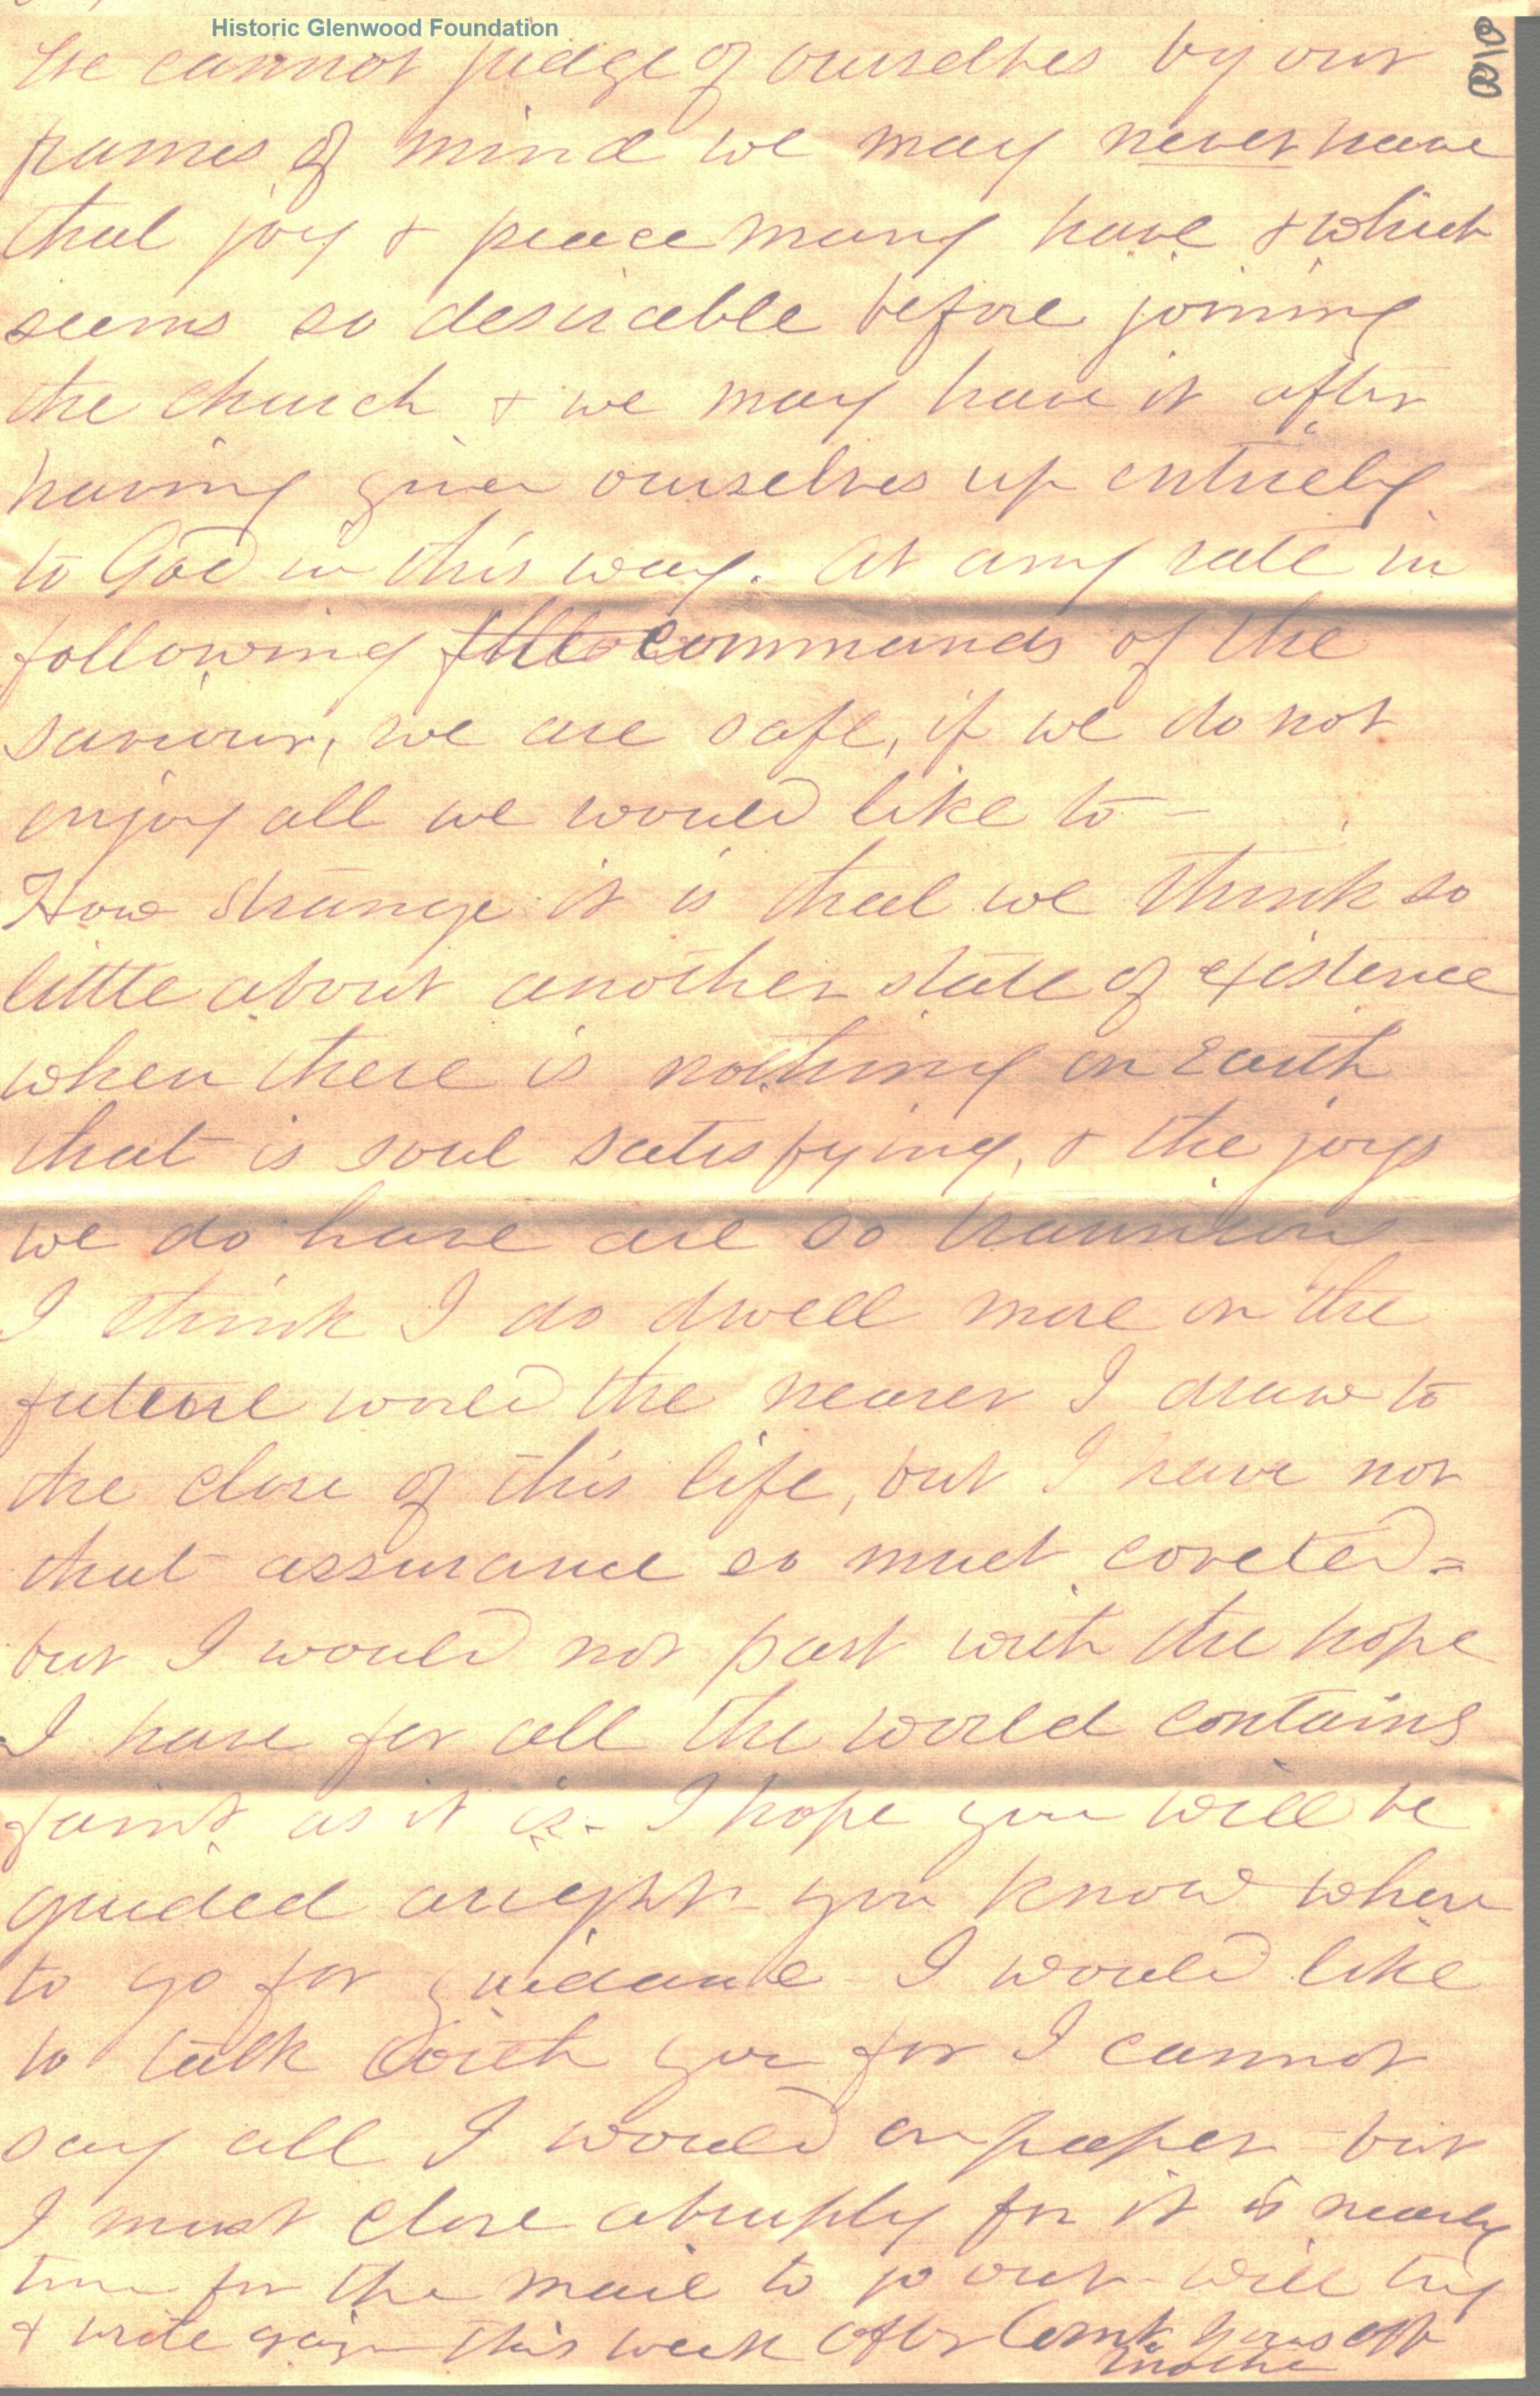 Historic Glenwood Foundation
We cannot judge of ourselves by our
frames of mind we may never have
that joy & peace many have & which
seems so desirable before joining
the church & we may have it after
having given ourselves up entirely
to God in this way. At any rate in
following the commands of the
saviour, we are safe, if we do not
enjoy all we would like to -
How strange it is that we think so
little about another state of existence
when there is nothing on Earth
that is soul satisfying, & the joys
we do have are so
I think I do dwell more on the
future world the nearer I draw to
the close of this life, but I have not
that assurance so much coveted =
but I would not part with the hope
I have for all the world contains
faint as it is - I hope you will be
guided aright you know where
to go for guidance I would like
to talk with you for I cannot
say all I would on paper - but
I must close abruptly for it is nearly
time for the mail to go out - will try
& write again this week after Com Yours aff
Mother